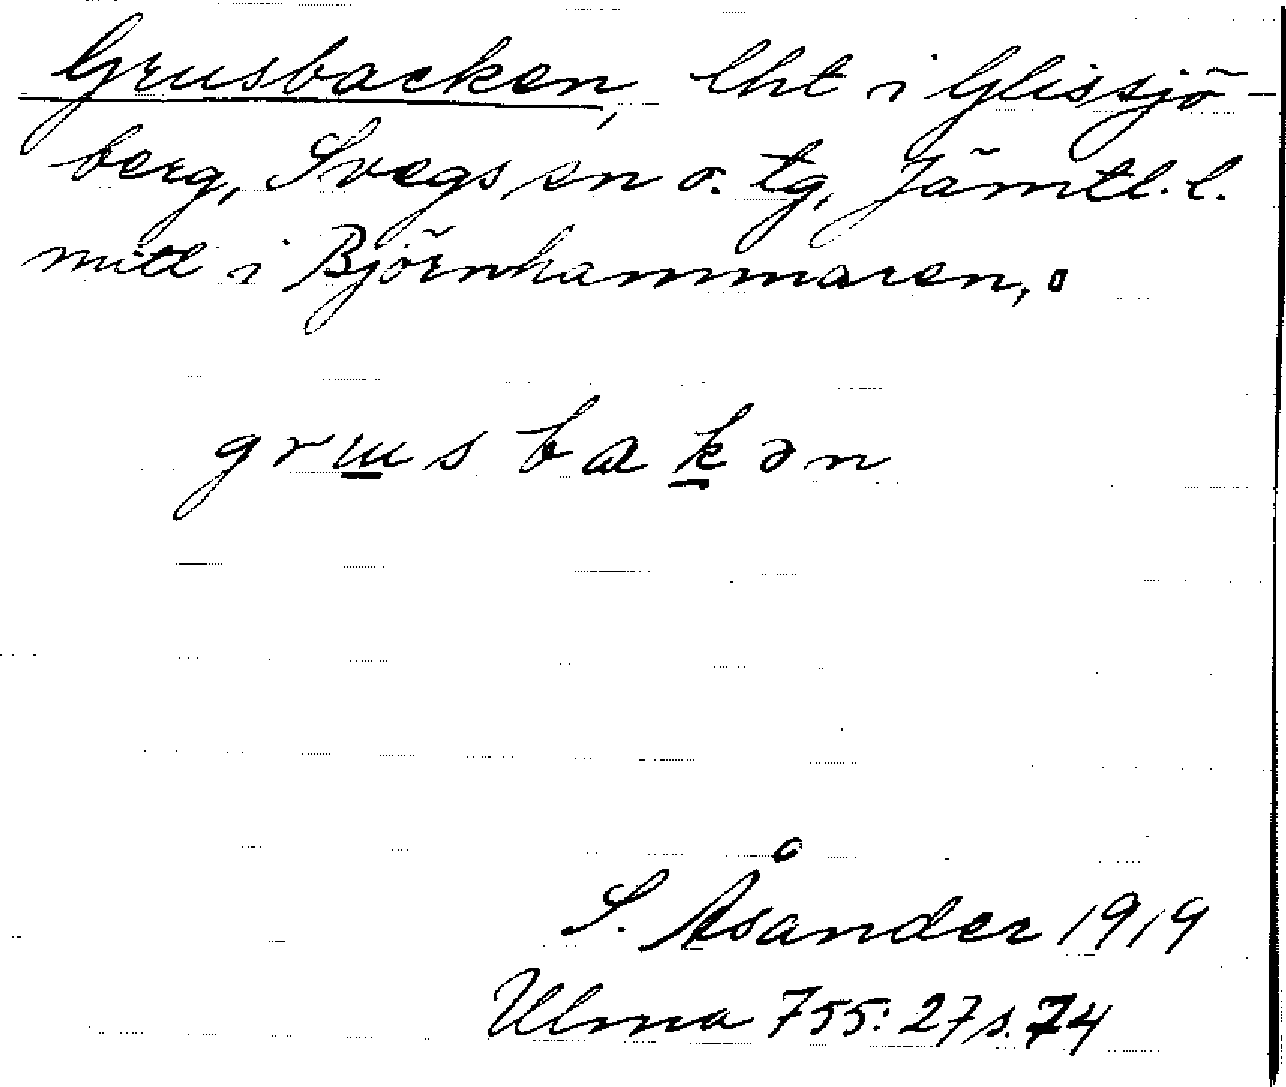 Grusbacken, lht i Glissjö-
berg, Svegs sn o. tg, Jämtl. l.
mitl i Björnhammaren,
grusbakən
S. Åsander 1919
Ulma 755:27 s. 74